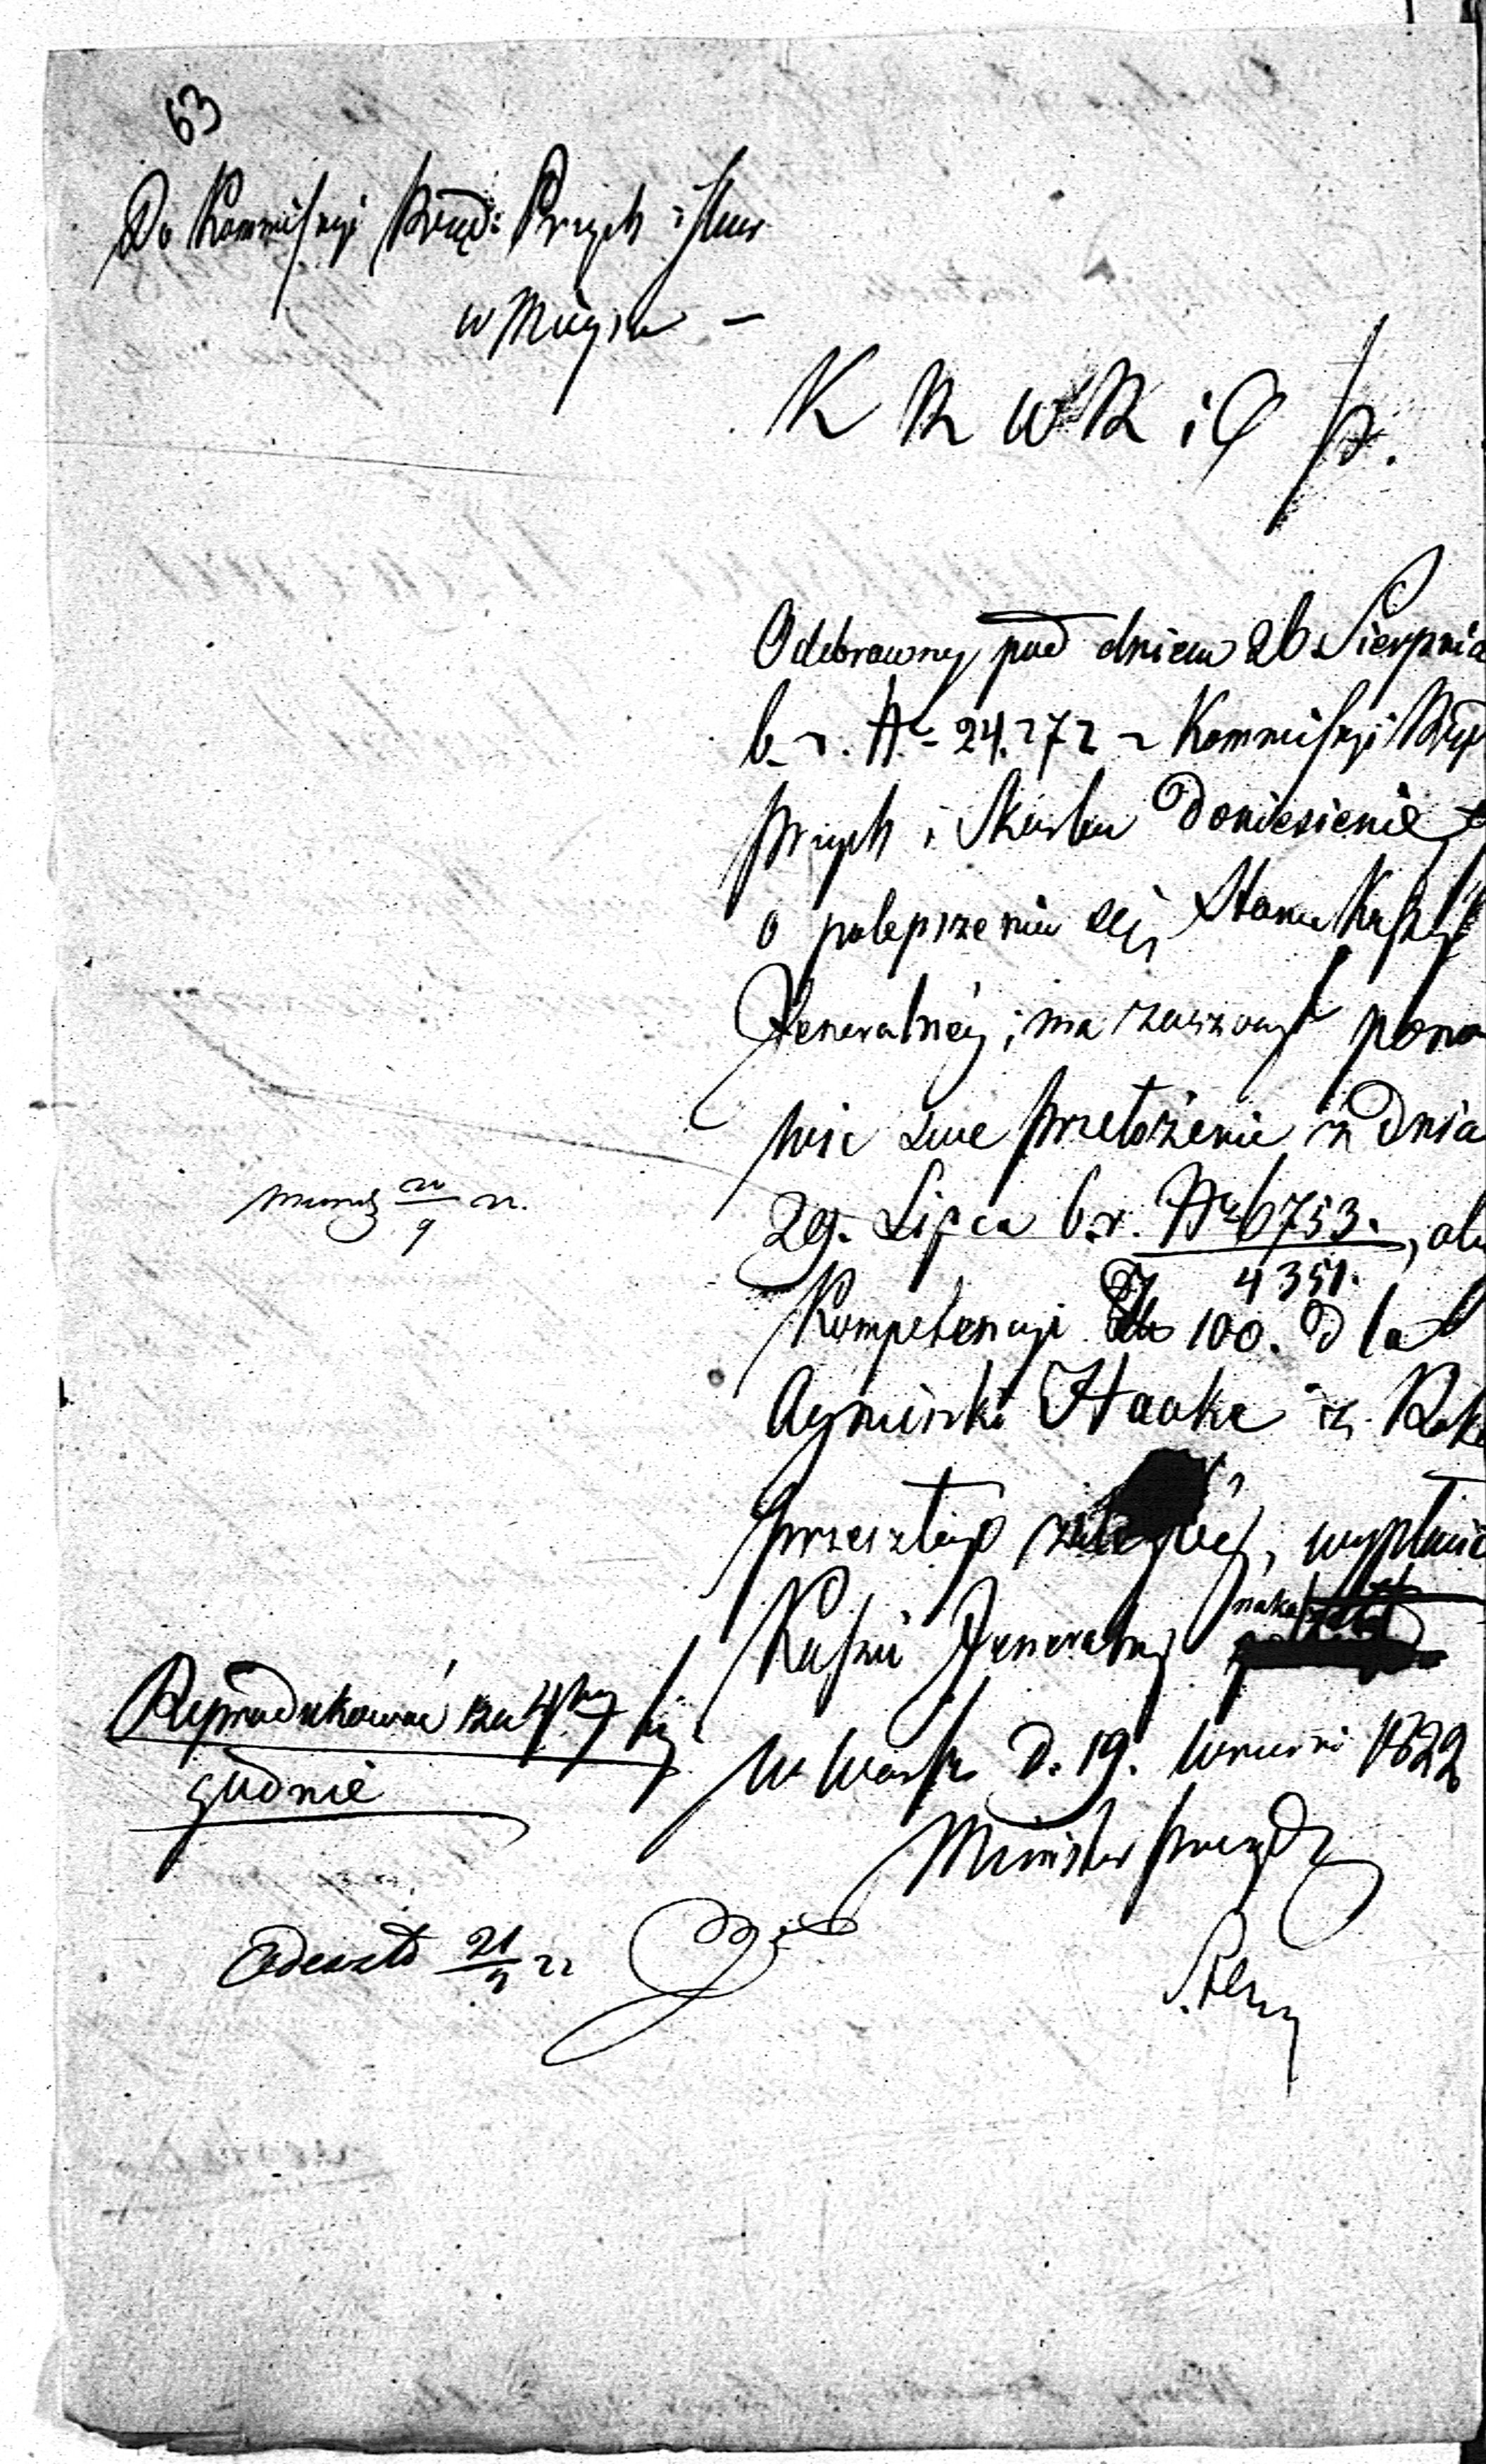 63
Do Kommissyi Rząd: Przych i Skar
w Miejscu –
K R W R i O P.
Odebrawszy pod dniem 26 Sierpnia
b. r. No 24.272 z Kommissyi Rząd
Przych i Skarbu doniesienie
o polepszeniu się Stanu Kassy
Jeneralnéy; ma zaszczyt pono
wić swe przełożenie z dnia
29. Lipca b. r. No 6753. , aby
4351.
Kompetencyi Zł 100. dla
Haake z Roku
przeszłego wypłacić
Kassie Jeneralney nakazała
w Warsz. d. 19. Wrześni 1822
Minister Prezyd
mund 20/9 22.
Reprodukować za 4ry ty
godnie
Odeszło 21/9 22